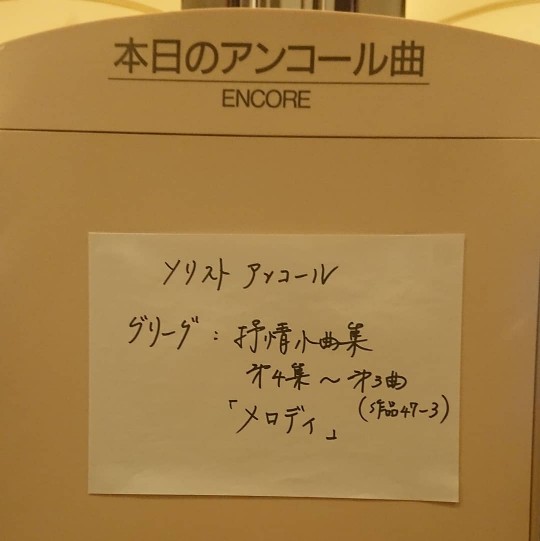 本日のアンコール曲
ENCORE
ソリスト アンコール
グリーグ：抒情小曲集
第4集～第3曲
(作品47-3)
「メロディ」